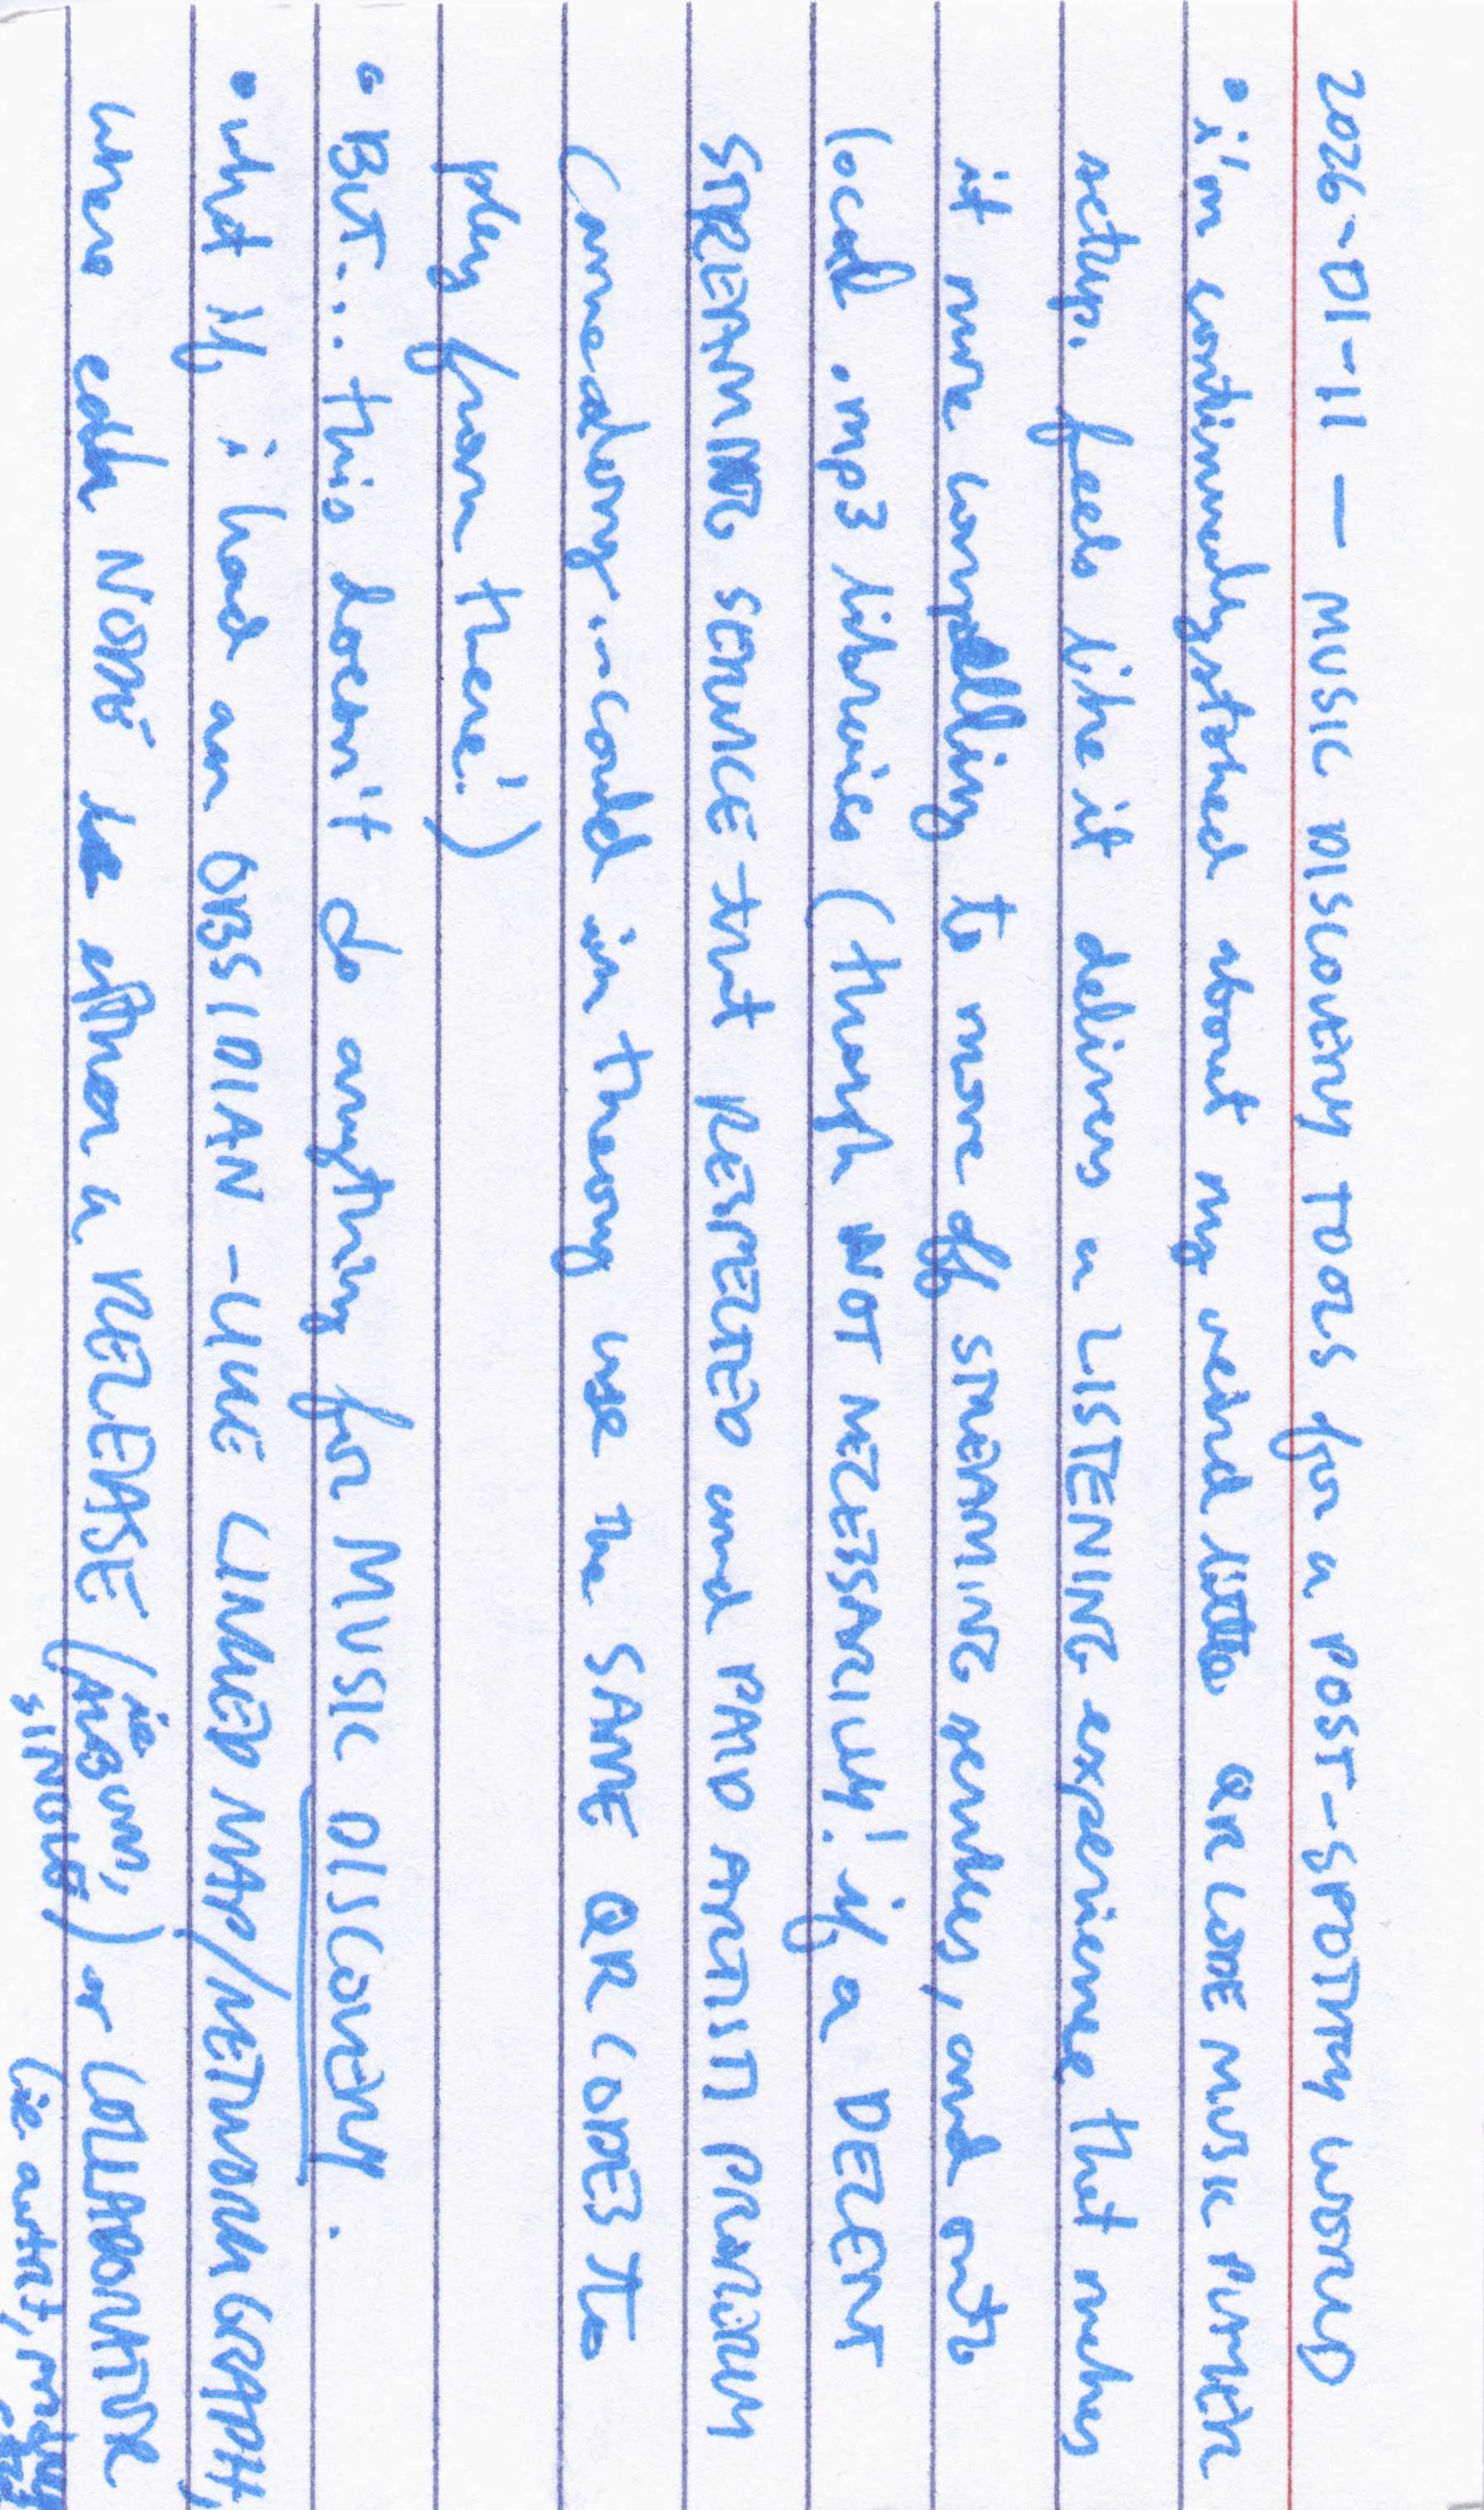 2026-01-11 — MUSIC DISCOVERY TOOLS for a POST-SPOTIFY WORLD
• i'm continually stoked about my weird little QR CODE MUSIC PLAYER
setup. feels like it delivers a LISTENING experience that makes
it more compelling to move off STREAMING services, and onto
local .mp3 libraries (though NOT NECESSARILY! if a DECENT
STREAMING SERVICE that RESPECTED and PAID ARTISTS PROPERLY
came along... could in theory use the SAME QR CODES to
play from there!)
• BUT... this doesn't do anything for MUSIC DISCOVERY.
• what if i had an OBSIDIAN-LIKE LINKED MAP/NETWORK GRAPH,
where each NODE is either a RELEASE (ie ALBUM, SINGLE) or COLLABORATIVE
(ie artist,